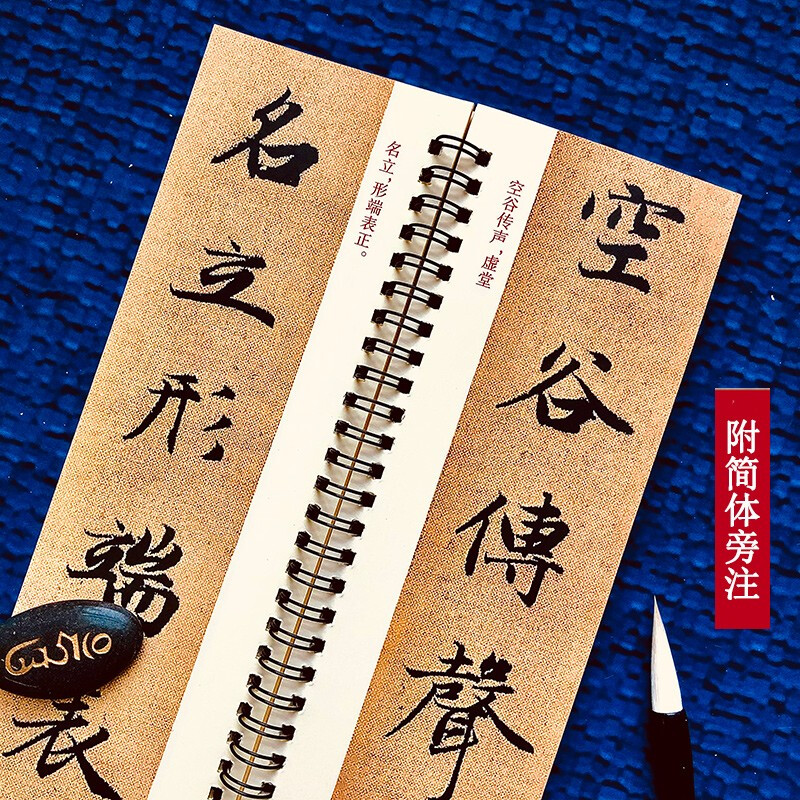 空谷傳聲
空谷传声，虚堂
名立，形端表正。
名立形端表
附简体旁注